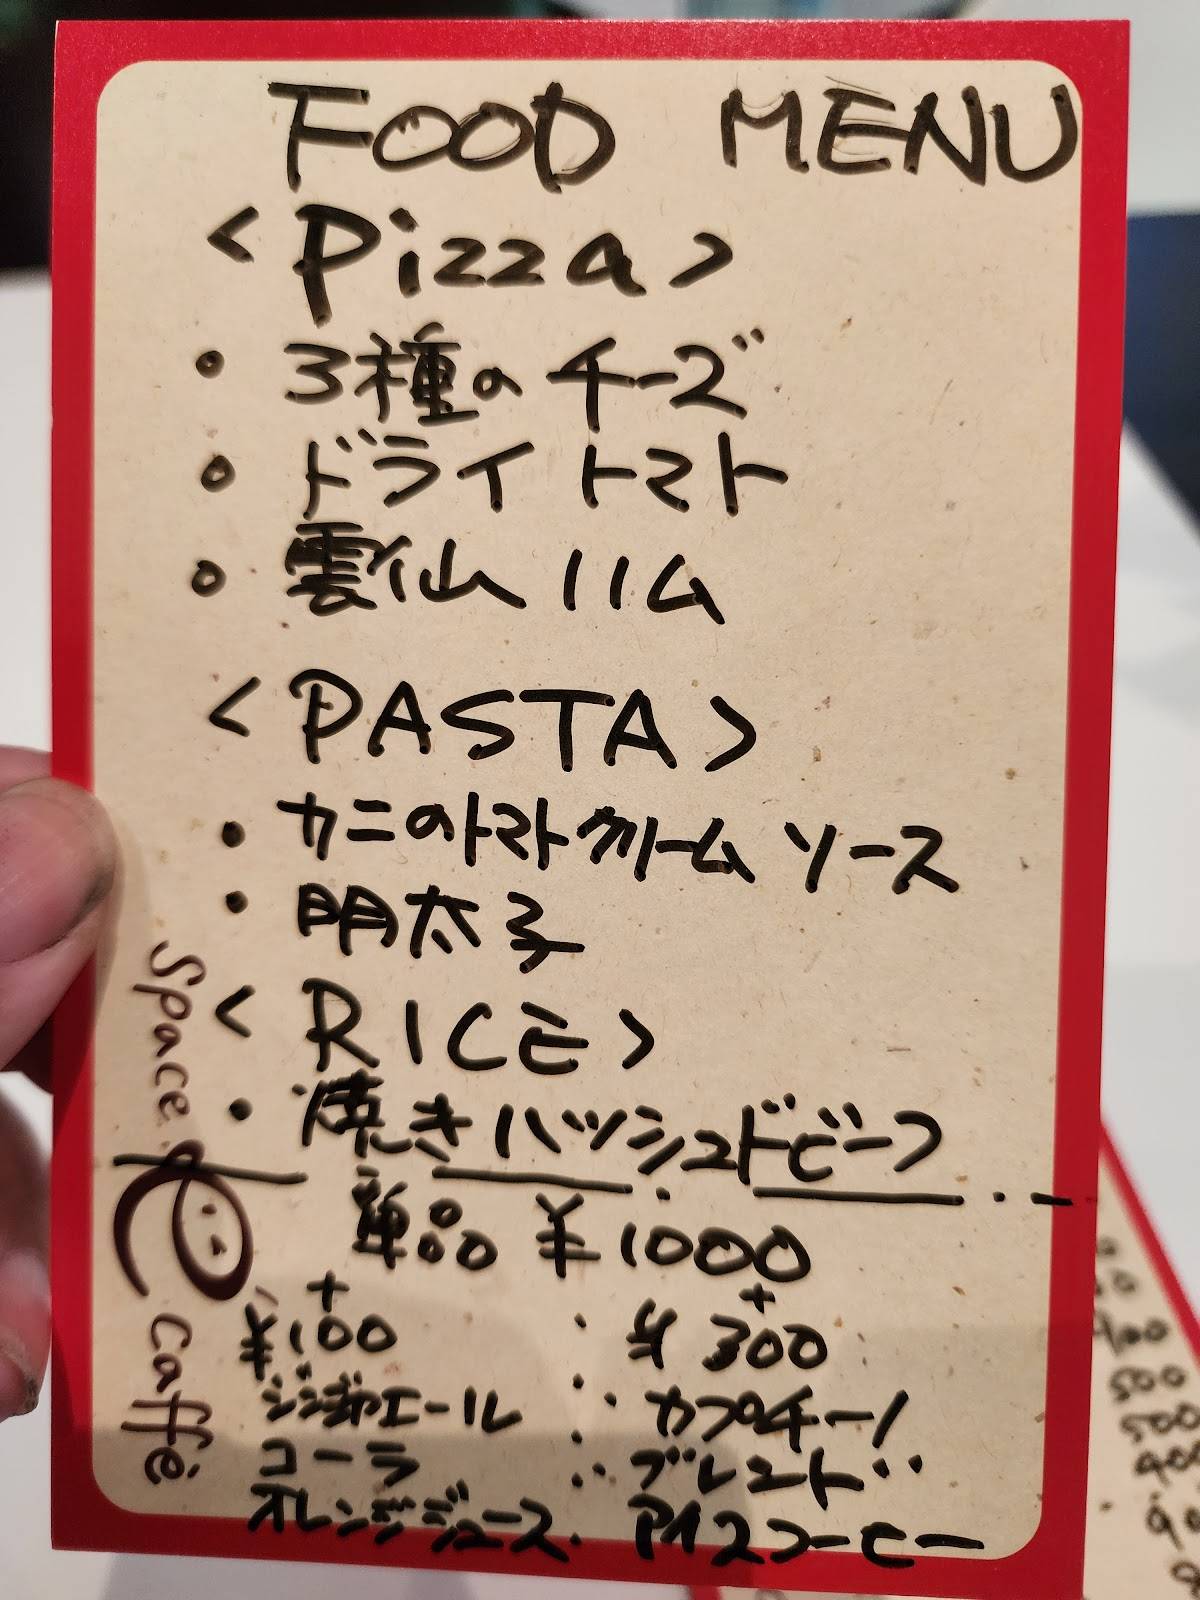 FOOD MENU
<Pizza>
・3種のチーズ
・ドライトマト
・雲仙ハム
<PASTA>
・カニのトマトクリームソース
・明太子
<RICE>
・焼きハッシュドビーフ
単品 ¥1000
+ +
¥100 ¥300
ジンジャエール カプチーノ
コーラ ブレンド
オレンジジュース アイスコーヒー
Space e Caffè
400
500
500
400